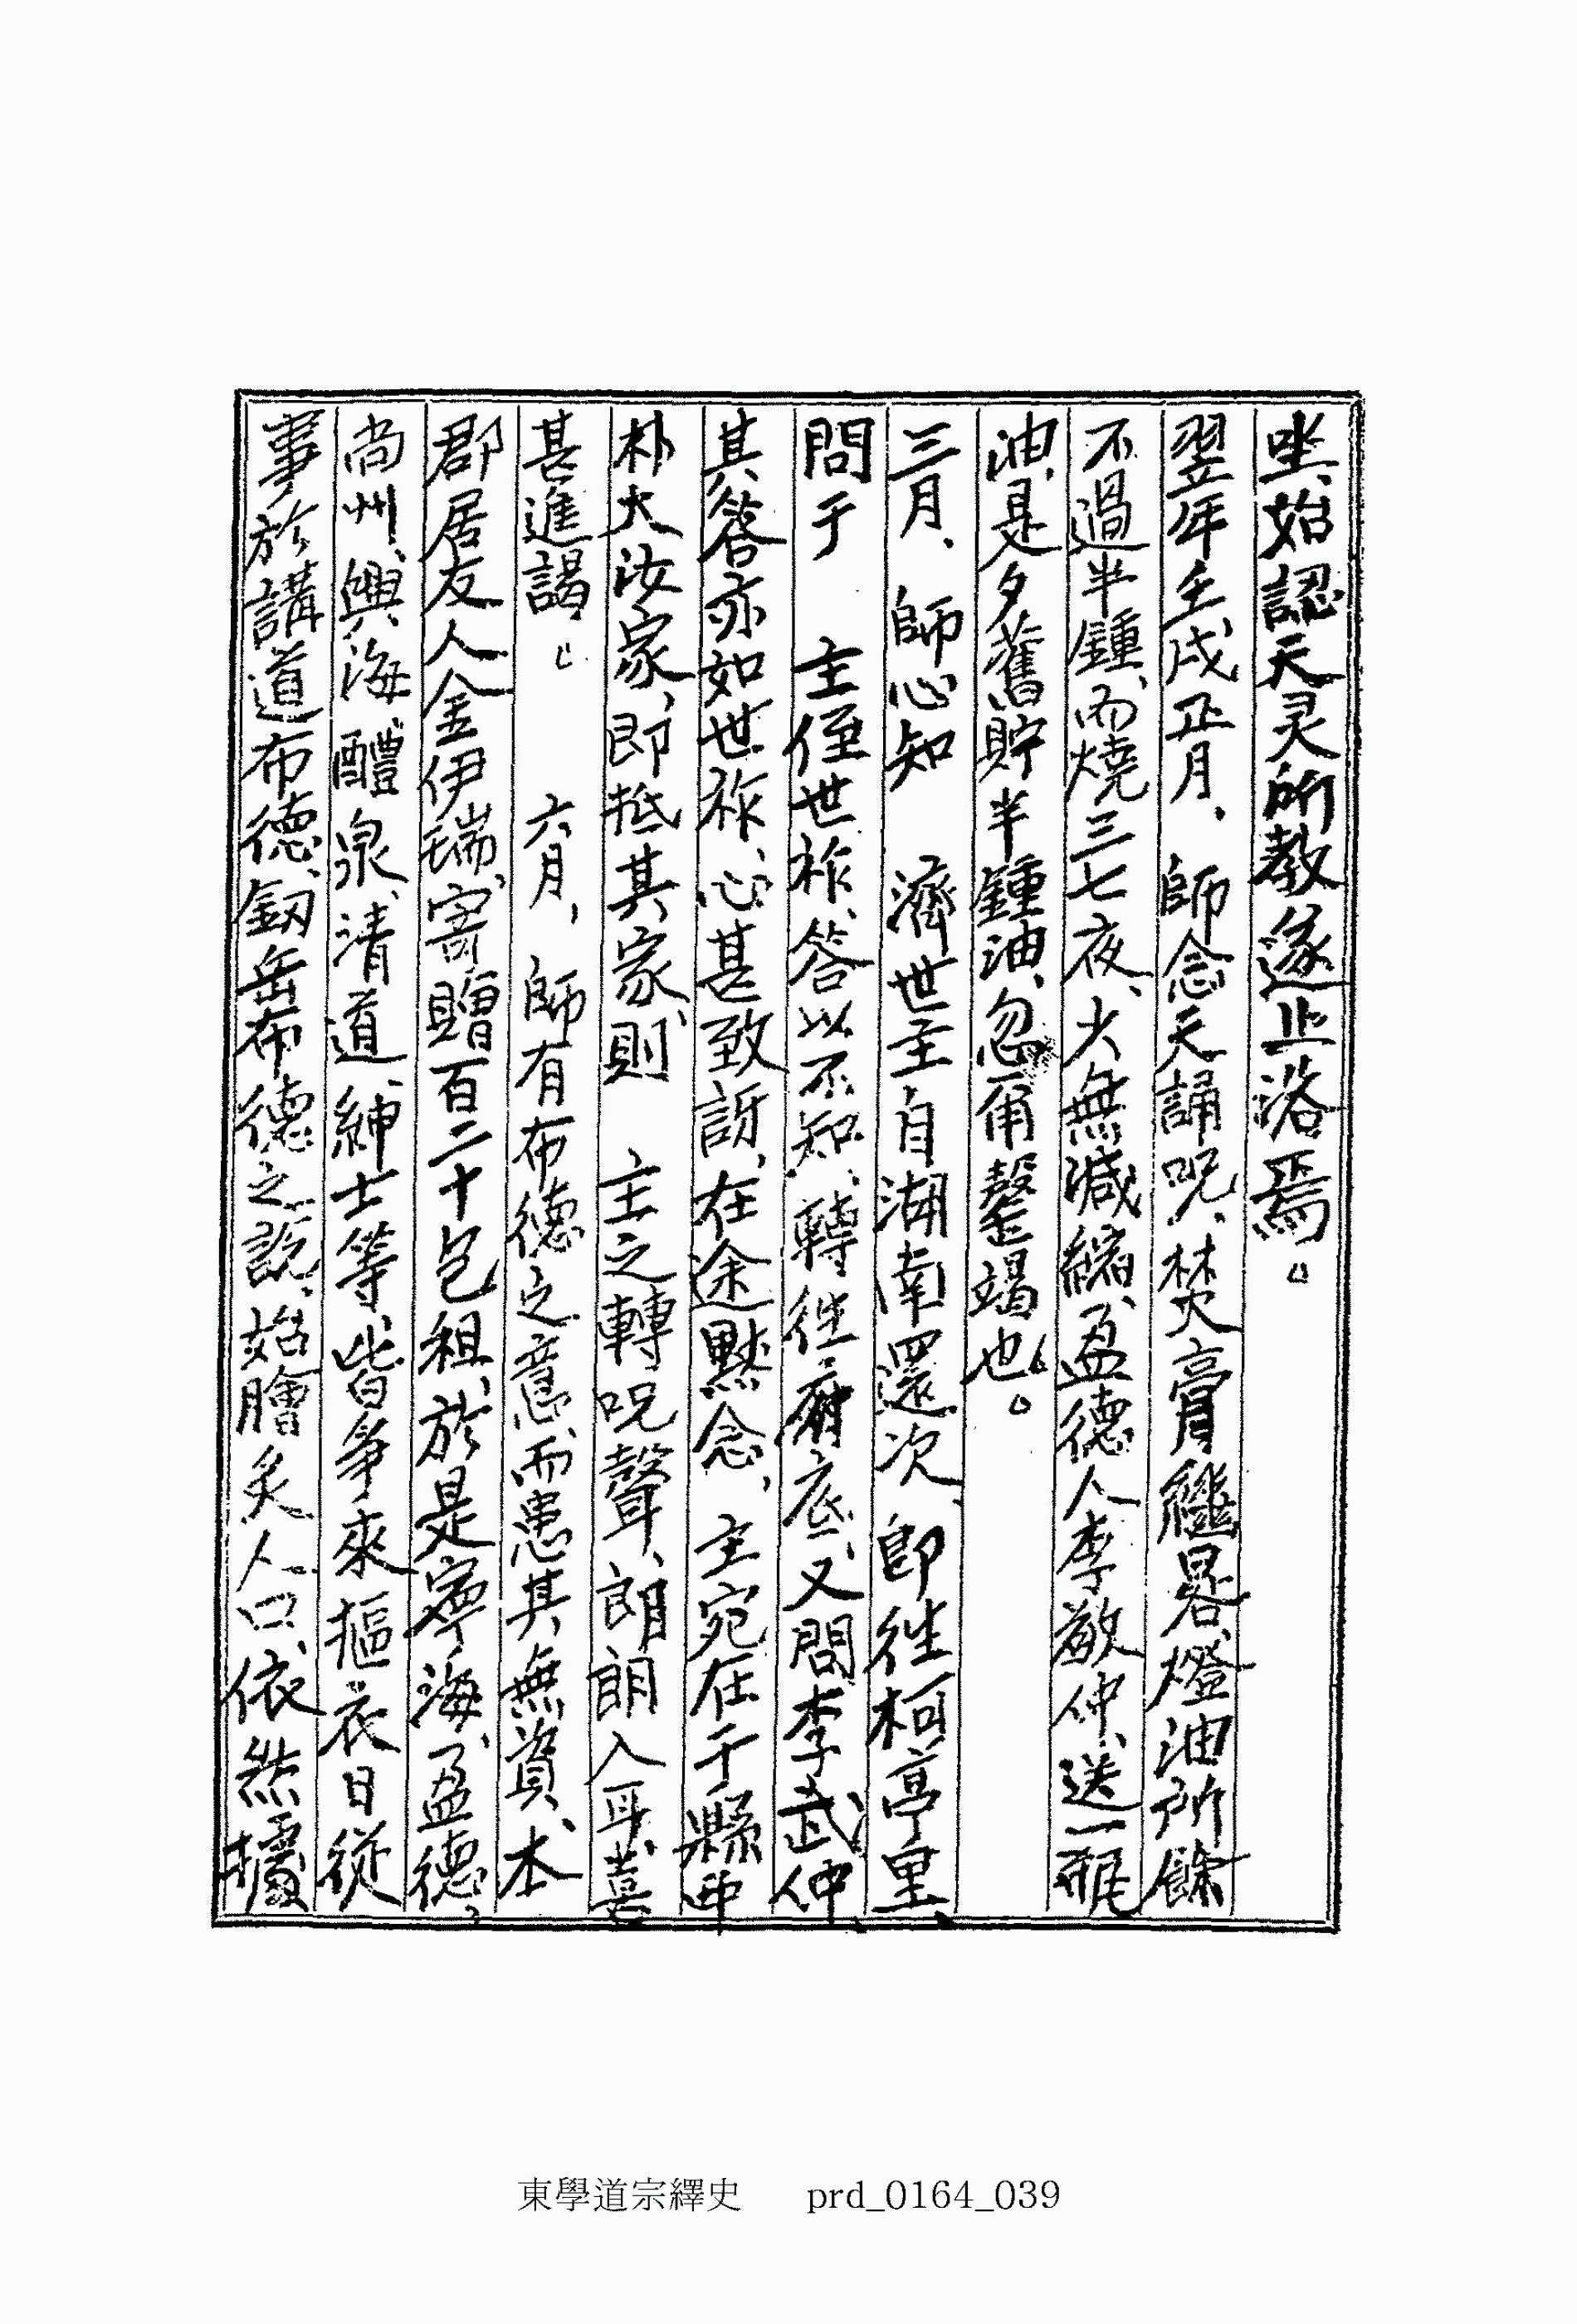 坐、始認天灵所教遂止浴焉。
翌年壬戌正月、師念天誦呪、焚膏継晷、燈油所餘
不過半鍾、而燒三七夜、少無減縮、盈德人李敬仲、送一瓶
油、是夕舊貯半鍾油、忽爾罄竭也。
三月、師心知 濟世主自湖南還次、卽往柯亭里、
問于 主侄世祚、答以不知、轉往府底、又問李武仲、
其答亦如世祚、心甚致訝、在途黙念、主宛在于縣西
朴大汝家、即抵其家、則 主之轉呪聲、朗朗入耳、喜
甚進謁。 六月、師有布德之意、而患其無資、本
郡居友人金伊瑞、寄贈百二十包租、於是寧海、盈德、
尙州、興海、醴泉、清道、紳士等、皆爭來摳衣日從
事於講道布德、釰岳布德之說、始膾炙人口、依然據
東學道宗繹史 prd_0164_039